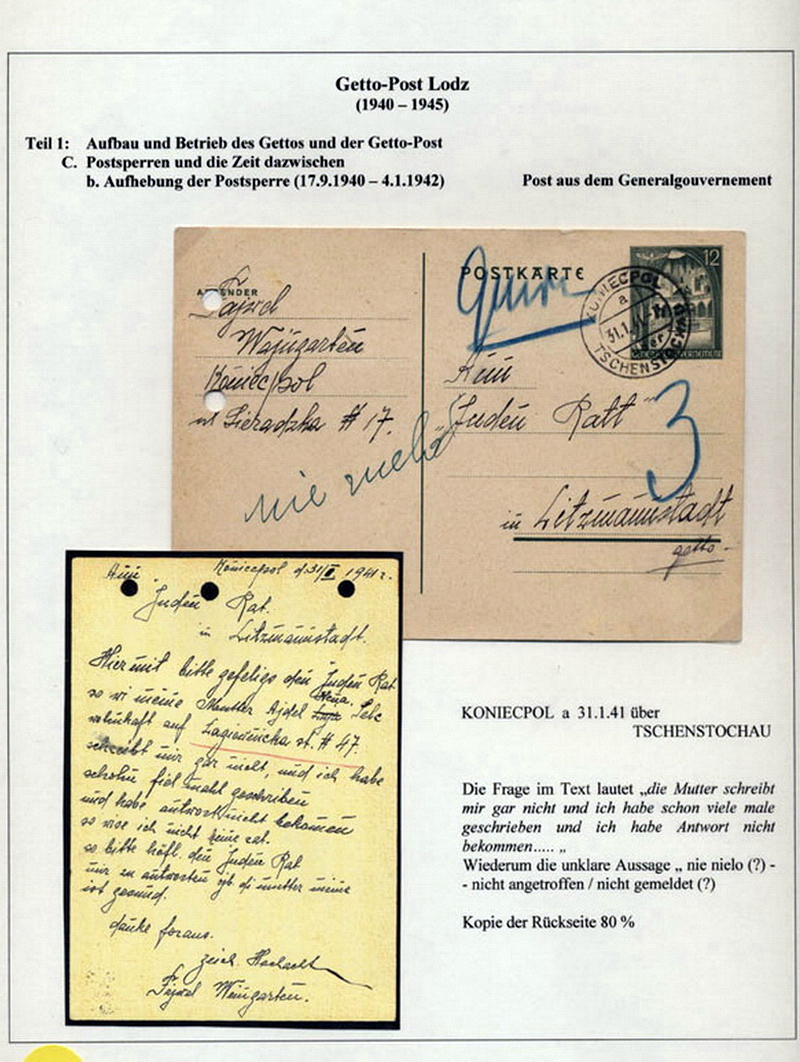 Getto-Post Lodz
(1940 – 1945)
Teil 1: Aufbau und Betrieb des Gettos und der Getto-Post
C. Postsperren und die Zeit dazwischen
b. Aufhebung der Postsperre (17.9.1940 – 4.1.1942) Post aus dem Generalgouvernement
POSTKARTE
12
GENERALGOUVERNEMENT
KONIECPOL
a
31.1.41
über
TSCHENSTOCHAU
ABSENDER
Fajwel
Wajngarten
Koniecpol
ul Sieradzka # 17.
nie
An
"Juden Ratt"
3
in Litzmannstadt
getto-
An Koniecpol d. 31/I 1941 r.
Juden Rat.
in Litzmannstadt.
Hiermit bitte gefeligs den Juden Rat
so wi meine Mutter Ajdel
wohnhaft auf Lagiewnicka st. # 47.
schreibt mir gar nicht, und ich habe
schohn fiel mahl geschriben
und habe antwort nicht bekomen
so wise ich nicht keine rat.
so bitte höfl. den Juden Rat
mir zu antworten ob di mutter meine
ist gesund.
danke foraus.
zeich Hochacht
Fajwel Weingarten.
KONIECPOL a 31.1.41 über
TSCHENSTOCHAU
Die Frage im Text lautet „die Mutter schreibt
mir gar nicht und ich habe schon viele male
geschrieben und ich habe Antwort nicht
bekommen..... „
Wiederum die unklare Aussage „ nie nielo (?) -
- nicht angetroffen / nicht gemeldet (?)
Kopie der Rückseite 80 %